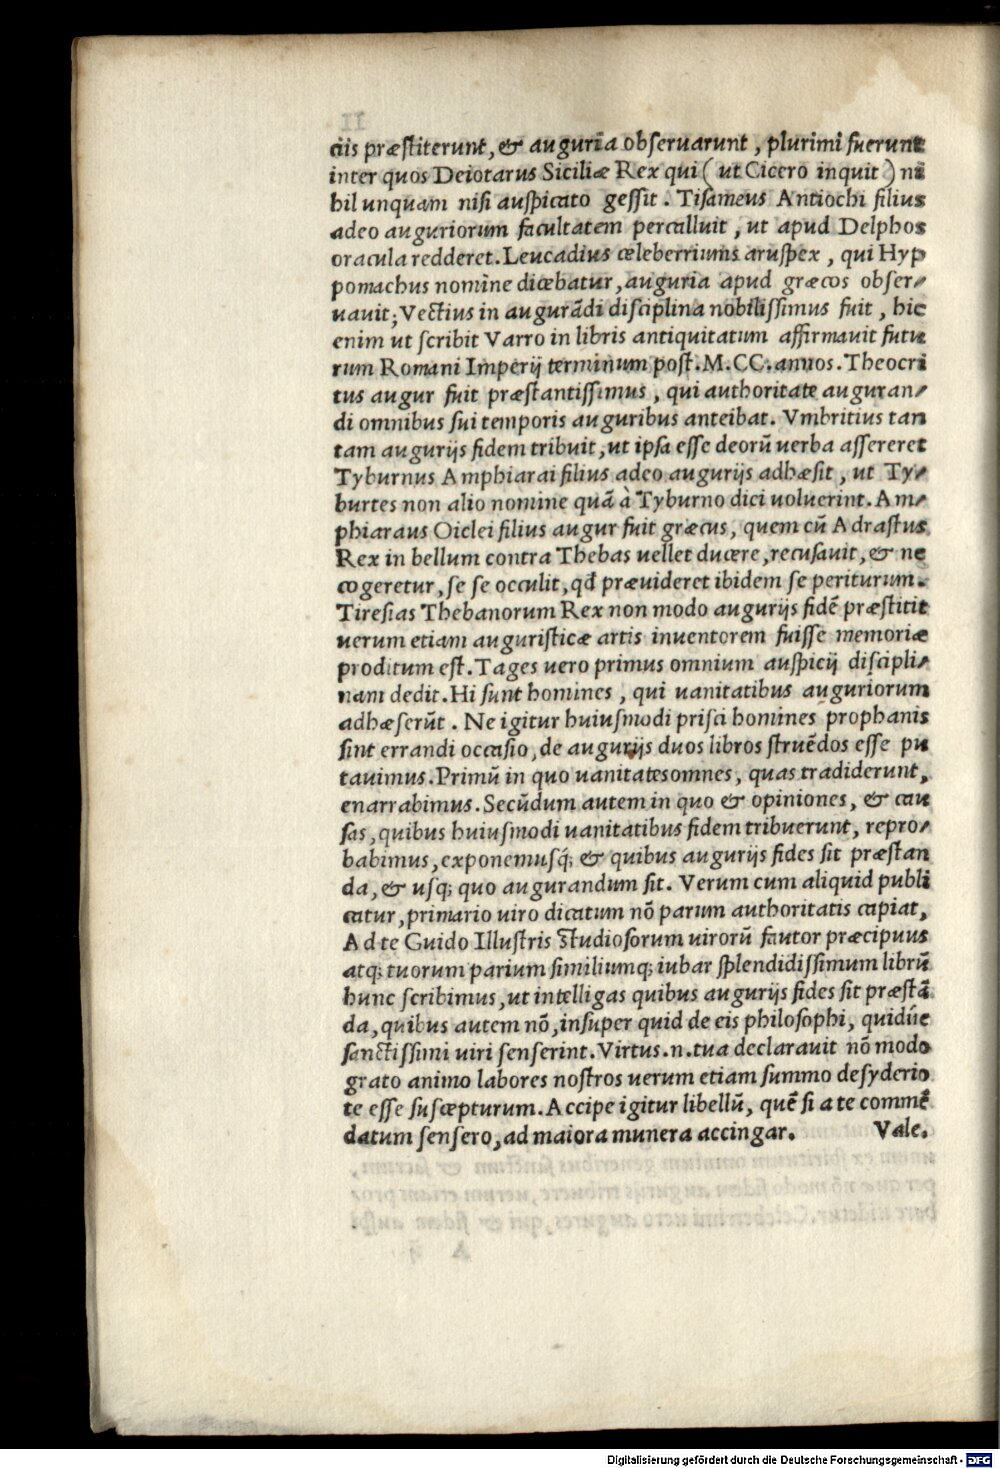 ciis præſtiterunt, & auguria obſeruarunt, plurimi fuerunt
inter quos Deiotarus Siciliæ Rex qui (ut Cicero inquit) ni
hil unquam niſi auſpicato geſſit. Tiſameus Antiochi filius
adeo auguriorum facultatem percalluit, ut apud Delphos
oracula redderet. Leucadius celeberriums aruſpex, qui Hyp
pomachus nomine dicebatur, auguria apud græcos obſer/
uauit; Vectius in augurãdi diſciplina nobiliſſimus fuit, hic
enim ut ſcribit Varro in libris antiquitatum affirmauit futu
rum Romani Imperij terminum poſt. M. CC. annos. Theocri
tus augur fuit præſtantiſſimus, qui authoritate auguran/
di omnibus ſui temporis auguribus anteibat. Vmbritius tan
tam augurijs fidem tribuit, ut ipſa eſſe deorũ uerba aſſereret
Tyburnus Amphiarai filius adeo augurijs adhæſit, ut Ty/
burtes non alio nomine quã à Tyburno dici uoluerint. Am/
phiaraus Oiclei filius augur fuit græcus, quem cũ Adraſtus
Rex in bellum contra Thebas uellet ducere, recuſauit, & ne
cogeretur, ſe ſe occulit, qđ præuideret ibidem ſe periturum.
Tireſias Thebanorum Rex non modo augurijs fidẽ præſtitit
uerum etiam auguriſticæ artis inuentorem fuiſſe memoriæ
proditum eſt. Tages uero primus omnium auſpicij diſcipli/
nam dedit. Hi ſunt homines, qui uanitatibus auguriorum
adhæſerũt. Ne igitur huiuſmodi priſci homines prophanis
ſint errandi occaſio, de augurijs duos libros ſtruẽdos eſſe pu
tauimus. Primũ in quo uanitates omnes, quas tradiderunt,
enarrabimus. Secũdum autem in quo & opiniones, & cau
ſas, quibus huiuſmodi uanitatibus fidem tribuerunt, repro/
babimus, exponemuſq́; & quibus augurijs fides ſit præſtan
da, & uſq; quo augurandum ſit. Verum cum aliquid publi
catur, primario uiro dicatum nõ parum authoritatis capiat,
Ad te Guido Illuſtris ſtudioſorum uirorũ fautor præcipuus
atq; tuorum parium ſimiliumq; iubar ſplendidiſſimum librũ
hunc ſcribimus, ut intelligas quibus augurijs fides ſit præſtã
da, quibus autem nõ, inſuper quid de eis philoſophi, quidúe
ſanctiſſimi uiri ſenſerint. Virtus. n. tua declarauit nõ modo
grato animo labores noſtros uerum etiam ſummo deſyderio
te eſſe ſuſcepturum. Accipe igitur libellũ, quẽ ſi a te commẽ
datum ſenſero, ad maiora munera accingar. Vale.
Digitalisierung gefördert durch die Deutsche Forschungsgemeinschaft - DFG